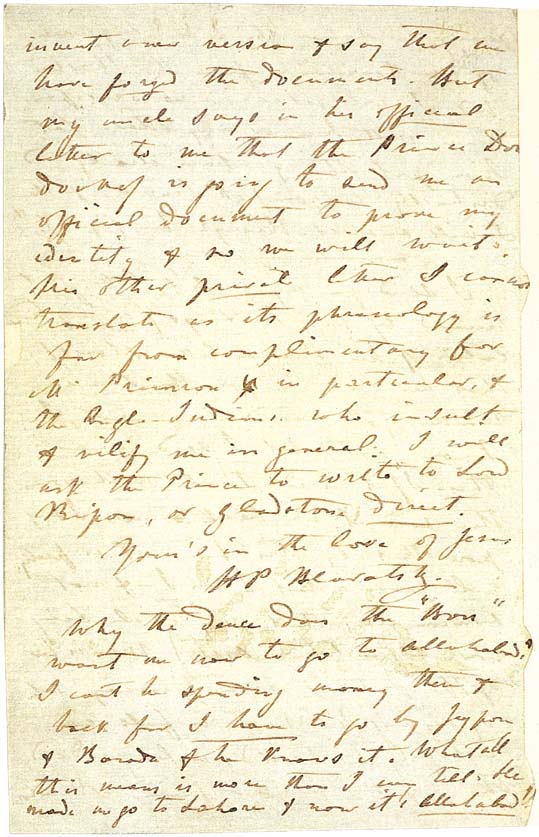 invent a new version & say that we
have forged the documents. But
my uncle says in his official
letter to me that the Prince Don
doukof is going to send me an
official document to prove my
identity & so we will wait.
his other privat letter I cannot
translate as its phraseology is
far from complimentary for
Mr Primrose in particular, &
the Anglo-Indians who insult
& vilify me in general. I will
ask the Prince to write to Lord
Ripon, or Gladstone direct.
Your's in the love of Jesus
HP Blavatsky.
Why the deuce does the "Boss"
want me now to go to Allahabad?
I can't be spending money there &
back for I have to go by Jeypor
& Baroda & he knows it. What all
this means is more than I can tell. He
made me go to Lahore & now it's Allahabad!!